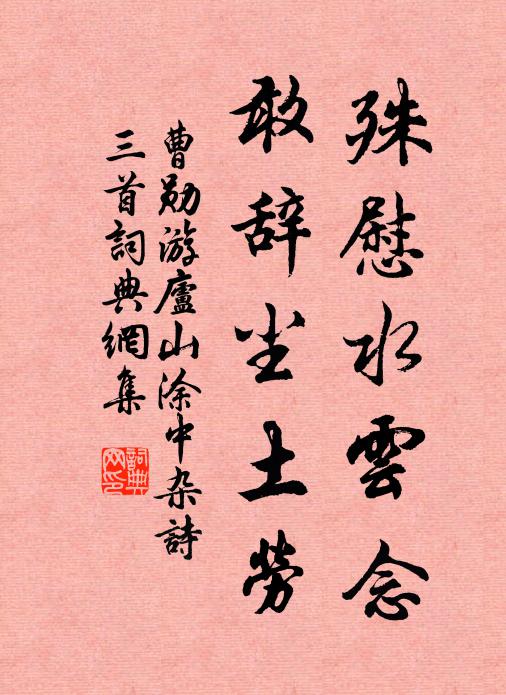 殊慰水雲念
敢辞尘土劳
曹勋游廬山涂中杂詩
三首詞典網集
詞典网印